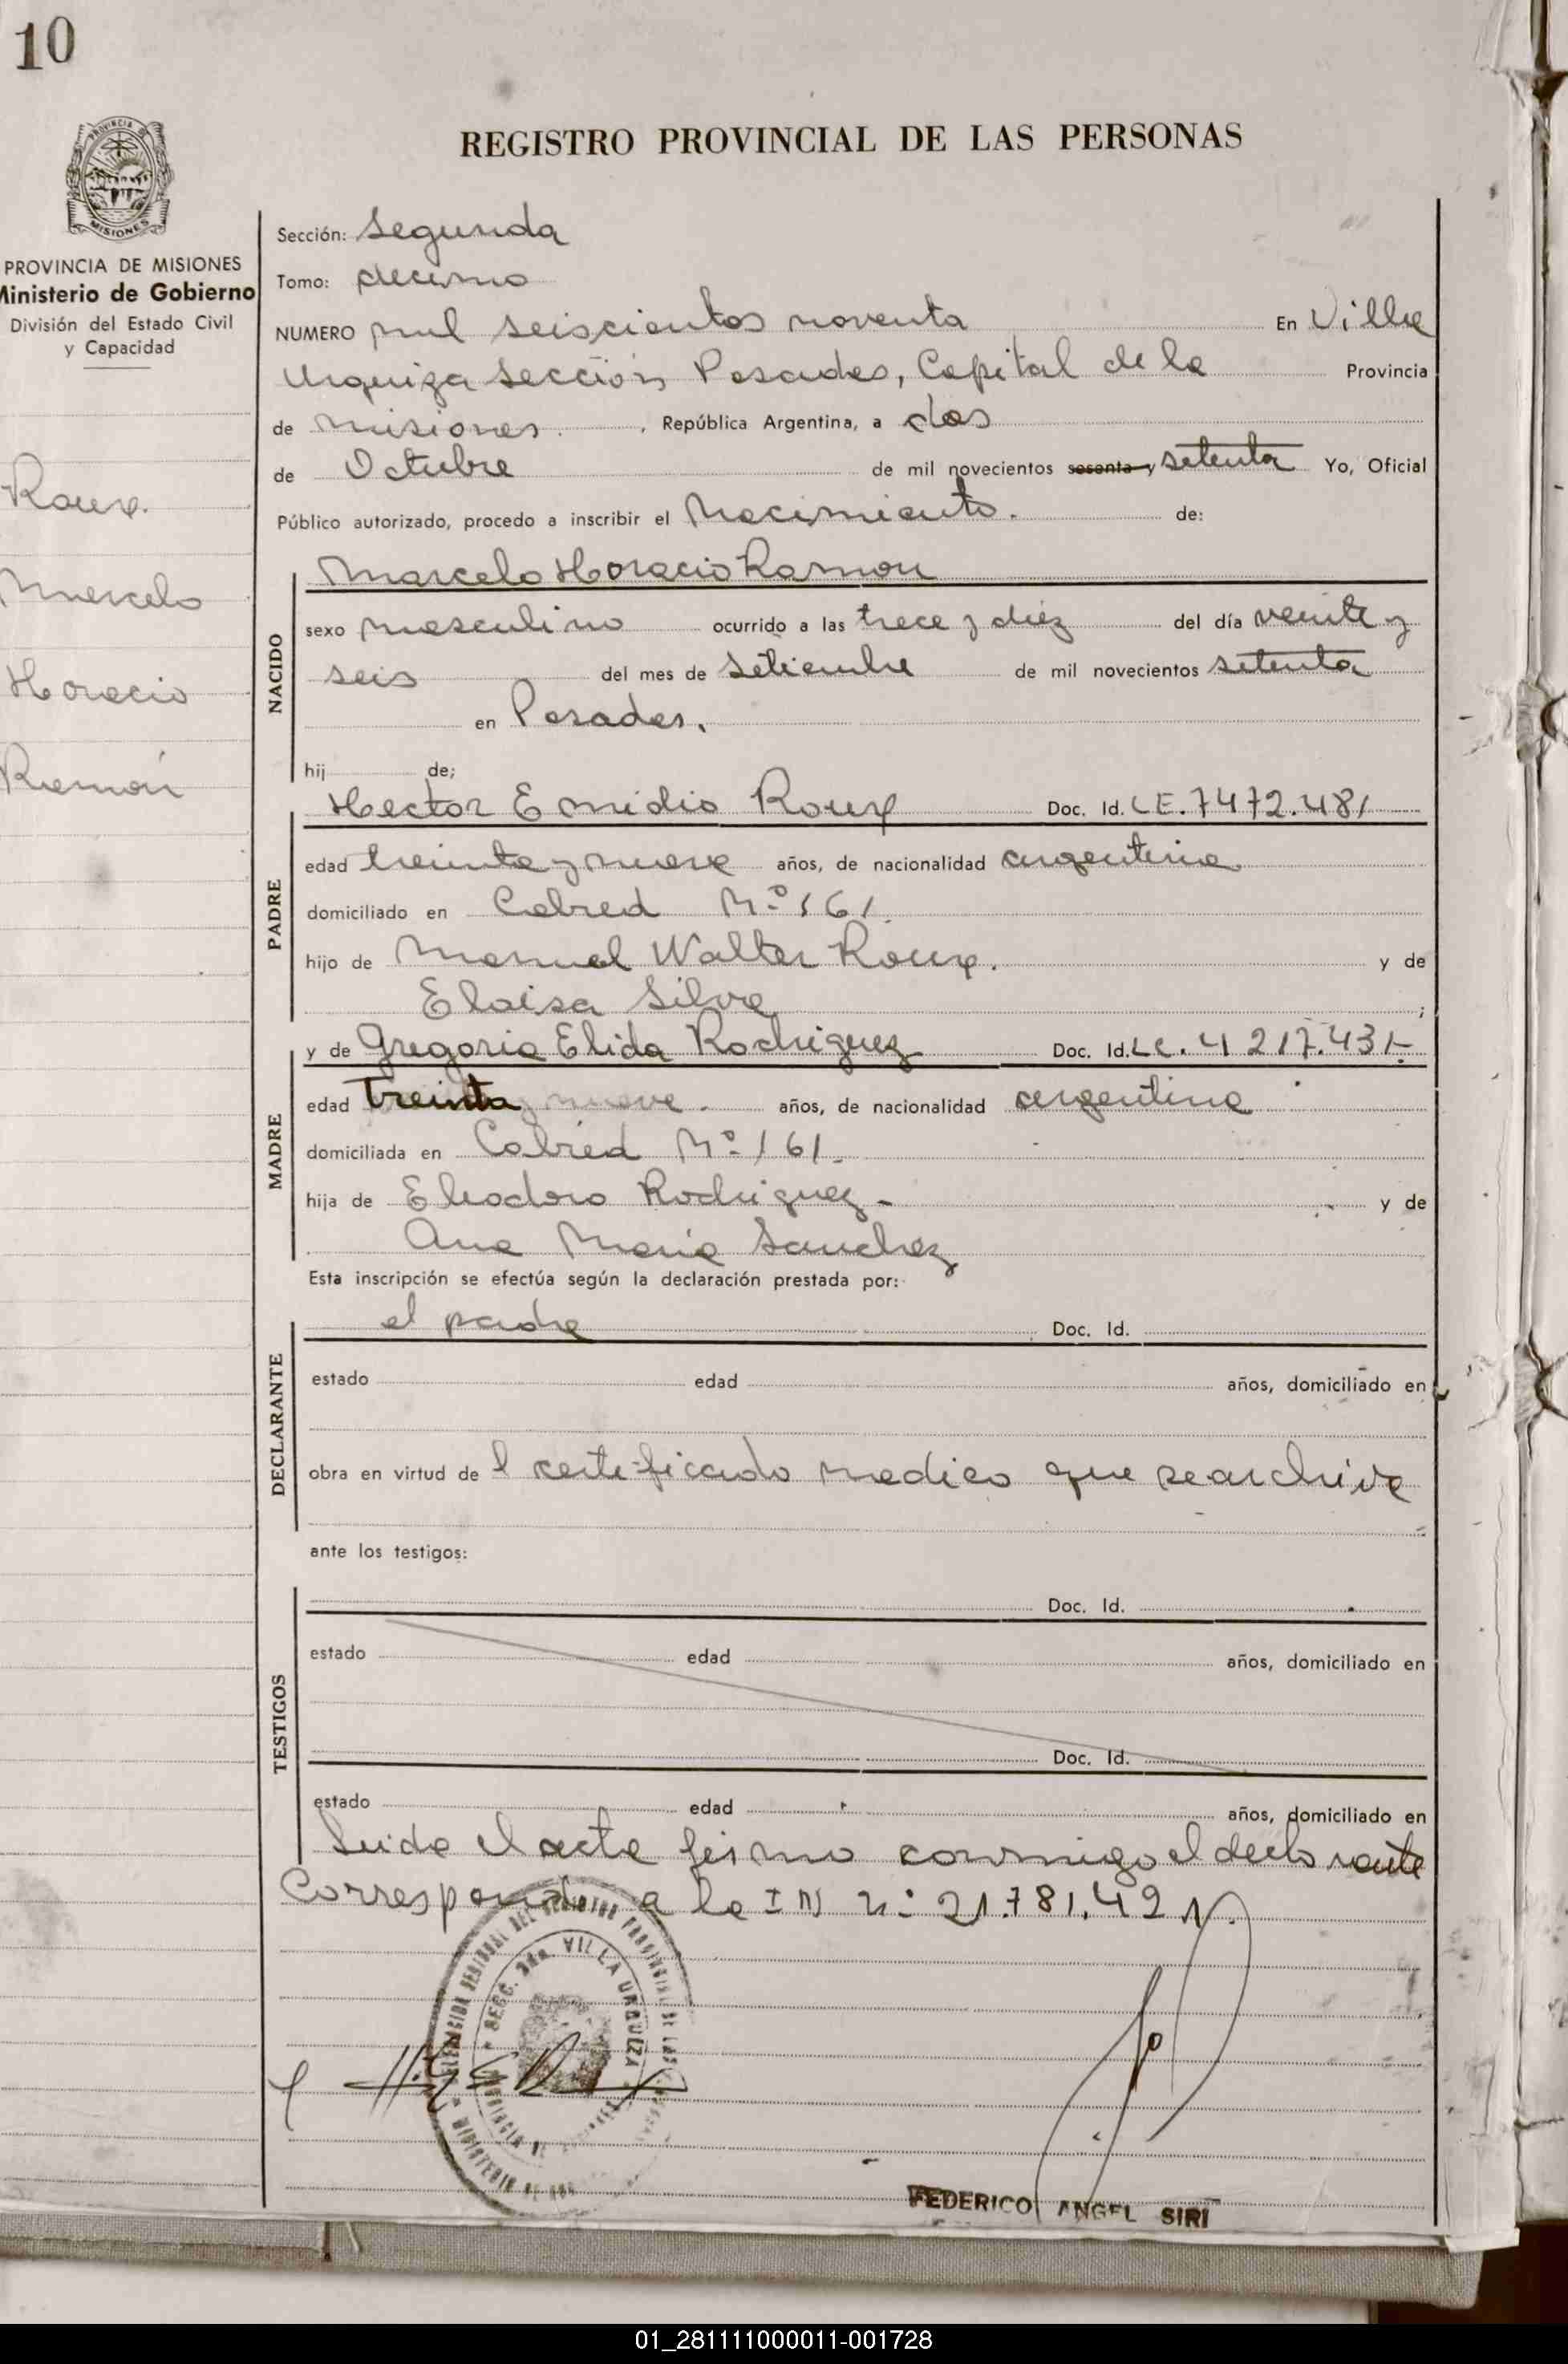 10
PROVINCIA DE
MISIONES
PROVINCIA DE MISIONES
Ministerio de Gobierno
División del Estado Civil
y Capacidad
Roux.
Marcelo
Horacio
Ramón
REGISTRO PROVINCIAL DE LAS PERSONAS
Sección: Segunda
Tomo: decimo
NUMERO mil seiscientos noventa En Villa
Urquiza sección, Posadas, Capital de la Provincia
de Misiones. , República Argentina, a dos
de Octubre de mil novecientos sesenta y setenta Yo, Oficial
Público autorizado, procedo a inscribir el Nacimiento. de:
Marcelo Horacio Ramon
NACIDO
sexo masculino ocurrido a las trece y diez del día veinte y
seis del mes de Setiembre de mil novecientos setenta
en Posadas.
hij de;
Hector Emidio Roux Doc. Id. LE. 7472.481
PADRE
edad treinta y nueve años, de nacionalidad argentina
domiciliado en Cabred Nº 161.
hijo de Manuel Walter Roux. y de
Eloisa Silva ;
y de Gregoria Elida Rodriguez Doc. Id. LC. 4 217.431-
MADRE
edad Treinta y nueve. años, de nacionalidad argentina
domiciliada en Cabred Nº 161.
hija de Eleodoro Rodriguez - y de
Ana Maria Sanchez
Esta inscripción se efectúa según la declaración prestada por:
el padre Doc. Id.
DECLARANTE
estado edad años, domiciliado en
obra en virtud de l certificado medico que se archiva
ante los testigos:
Doc. Id.
TESTIGOS
estado edad años, domiciliado en
Doc. Id.
estado edad años, domiciliado en
Leida el acta firmo conmigo el declarante
Corresponde a la I N n: 21.781.421.
SECC. 2da. VILLA URQUIZA
FEDERICO ANGEL SIRI
01_281111000011-001728